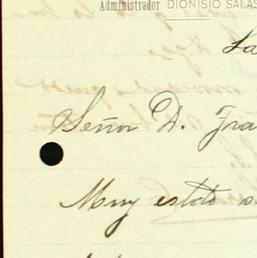 Administrador DIONISIO SALAS
La
Señor D. Fra
Muy estdo s